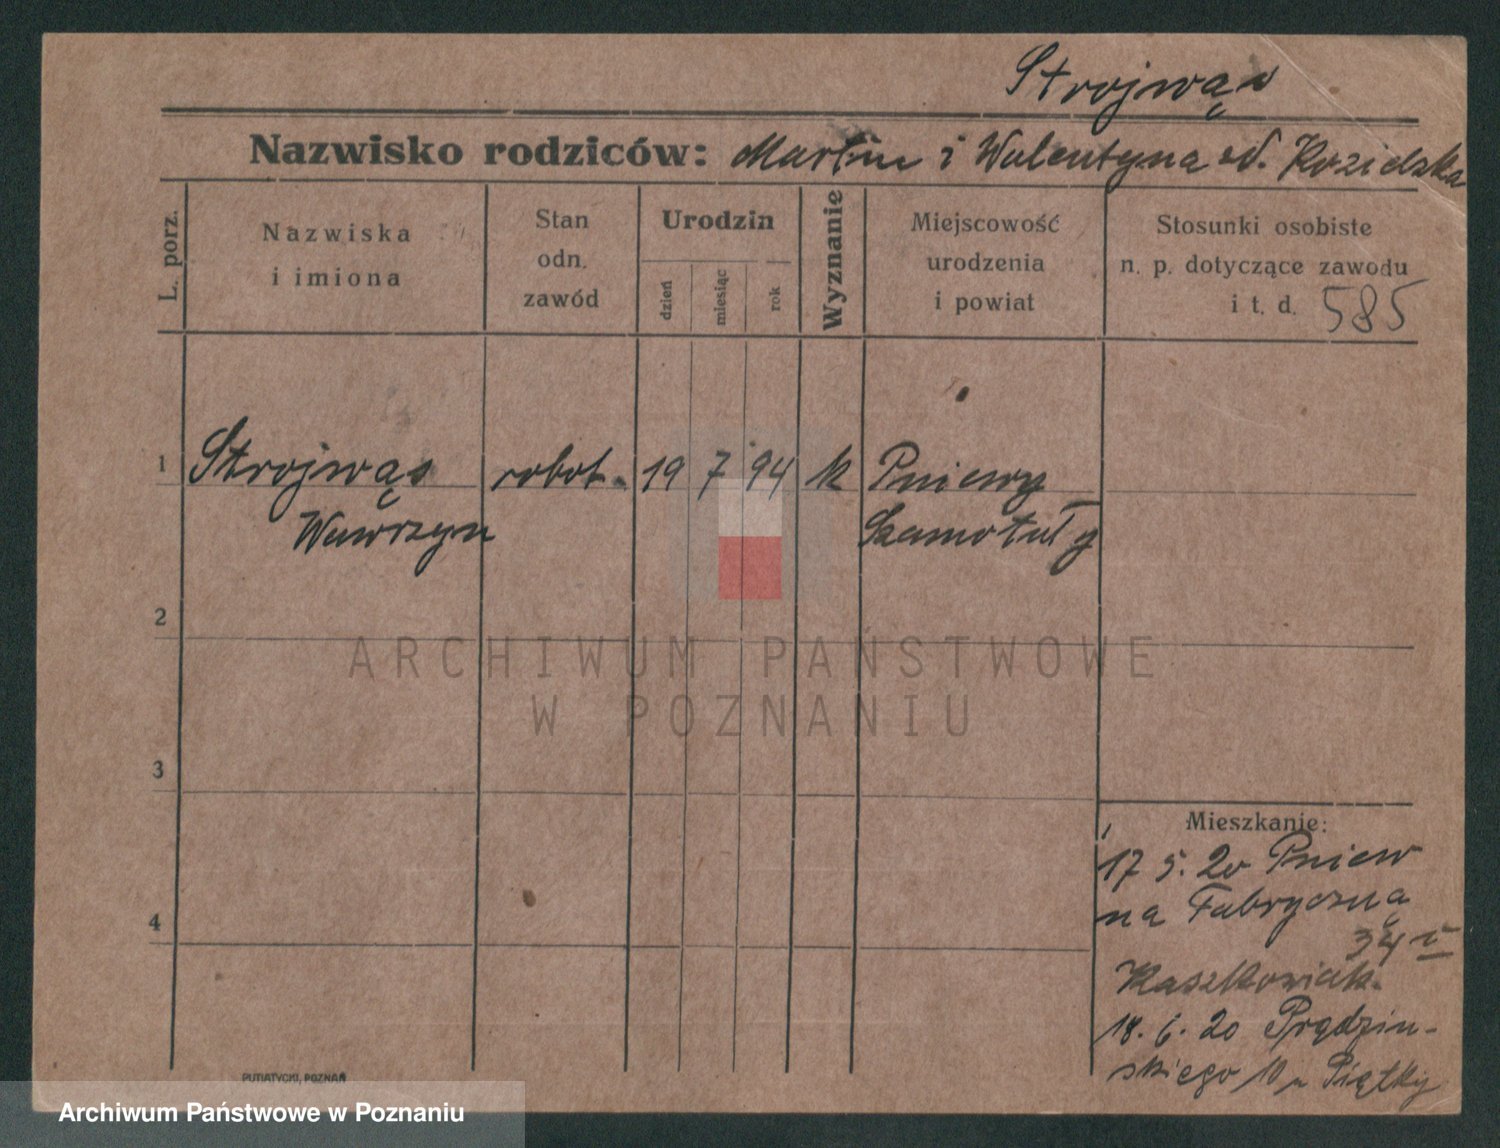 Strojwąs
Nazwisko rodziców: Martin i Walentyna od. Kozielska
L. porz.
Nazwiska
i imiona
Stan
odn.
zawód
Urodzin
dzień
miesiąc
rok
Wyznanie
Miejscowość
urodzenia
i powiat
Stosunki osobiste
n. p. dotyczące zawodu
i t. d. 585
1 Strojwąs robot. 19 7 94 k Pniewy
Wawrzyn Szamotuły
2
ARCHIWUM PAŃSTWOWE
W POZNANIU
3
Mieszkanie:
17 5. 20 Pniew
na Fabryczną
34
4
Kaszkowiak.
18. 6. 20 Prądzin-
skiego 10 Piątky
PUTIATYCKI, POZNAŃ
Archiwum Państwowe w Poznaniu